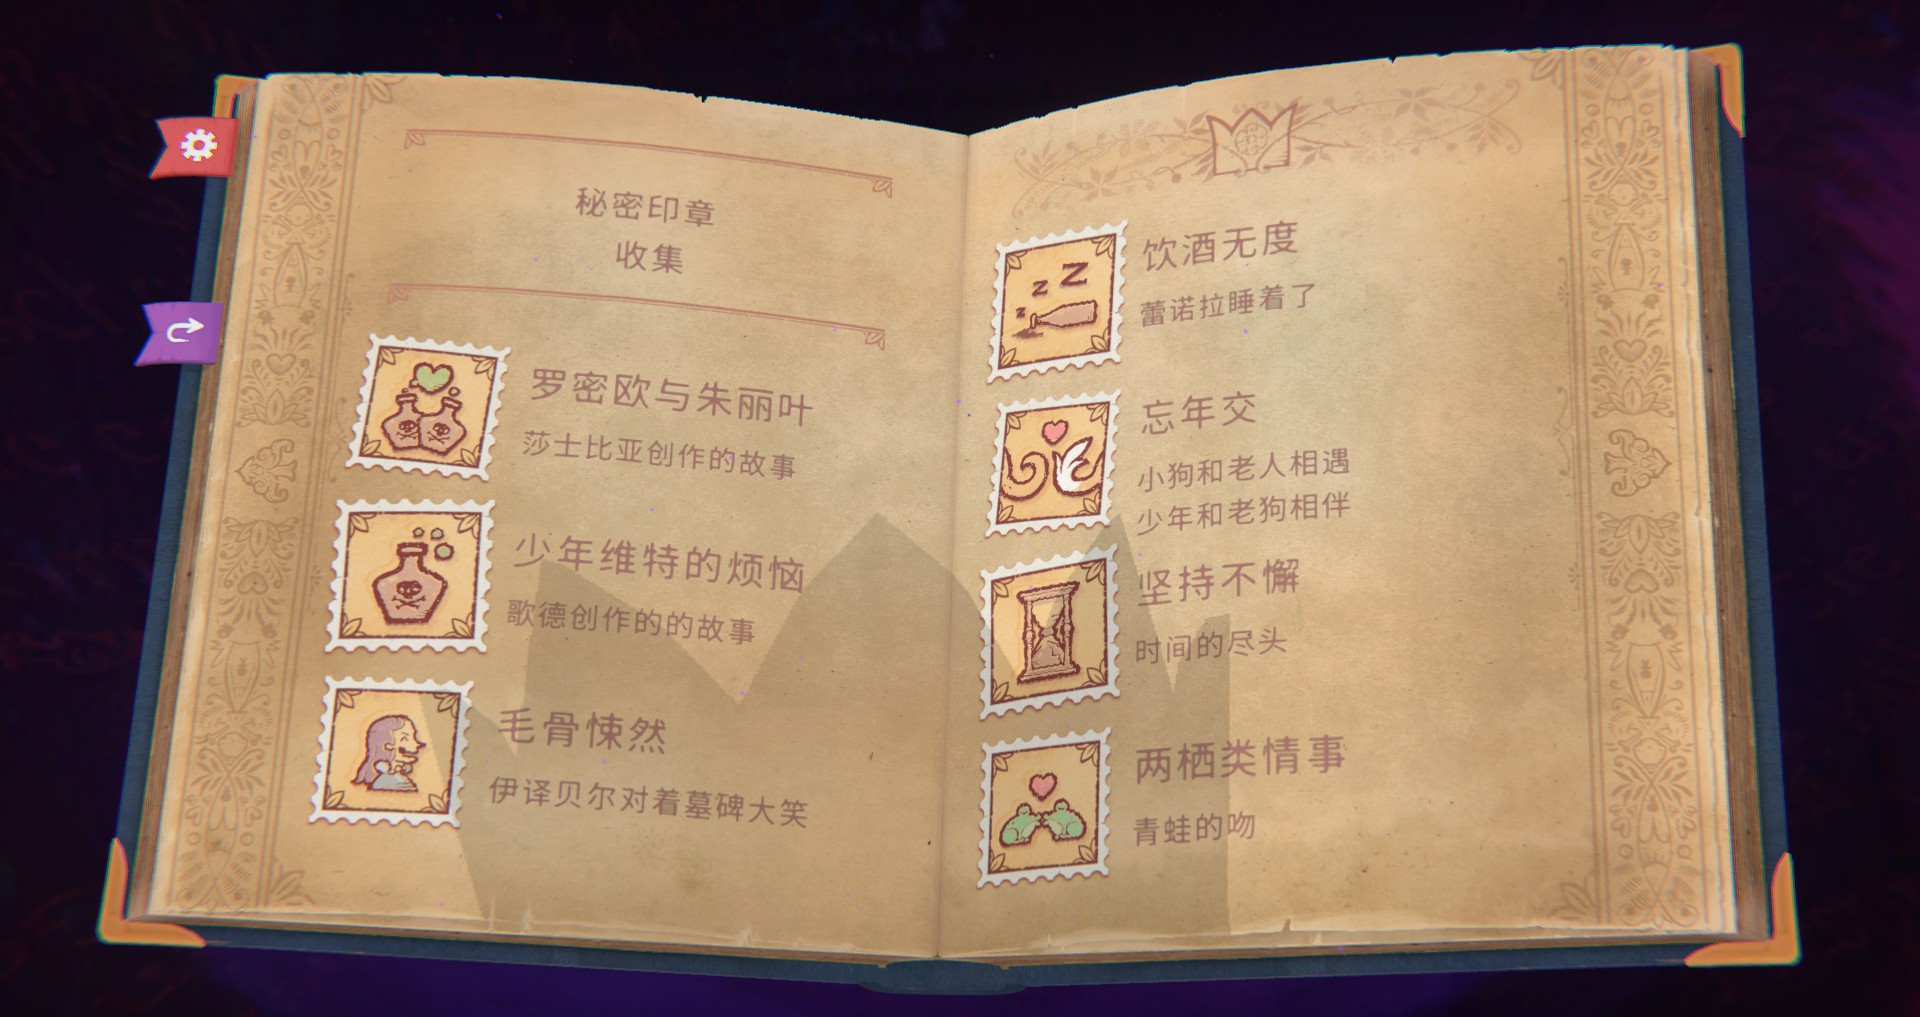 秘密印章
收集
罗密欧与朱丽叶
莎士比亚创作的故事
少年维特的烦恼
歌德创作的的故事
毛骨悚然
伊译贝尔对着墓碑大笑
饮酒无度
蕾诺拉睡着了
忘年交
小狗和老人相遇
少年和老狗相伴
坚持不懈
时间的尽头
两栖类情事
青蛙的吻